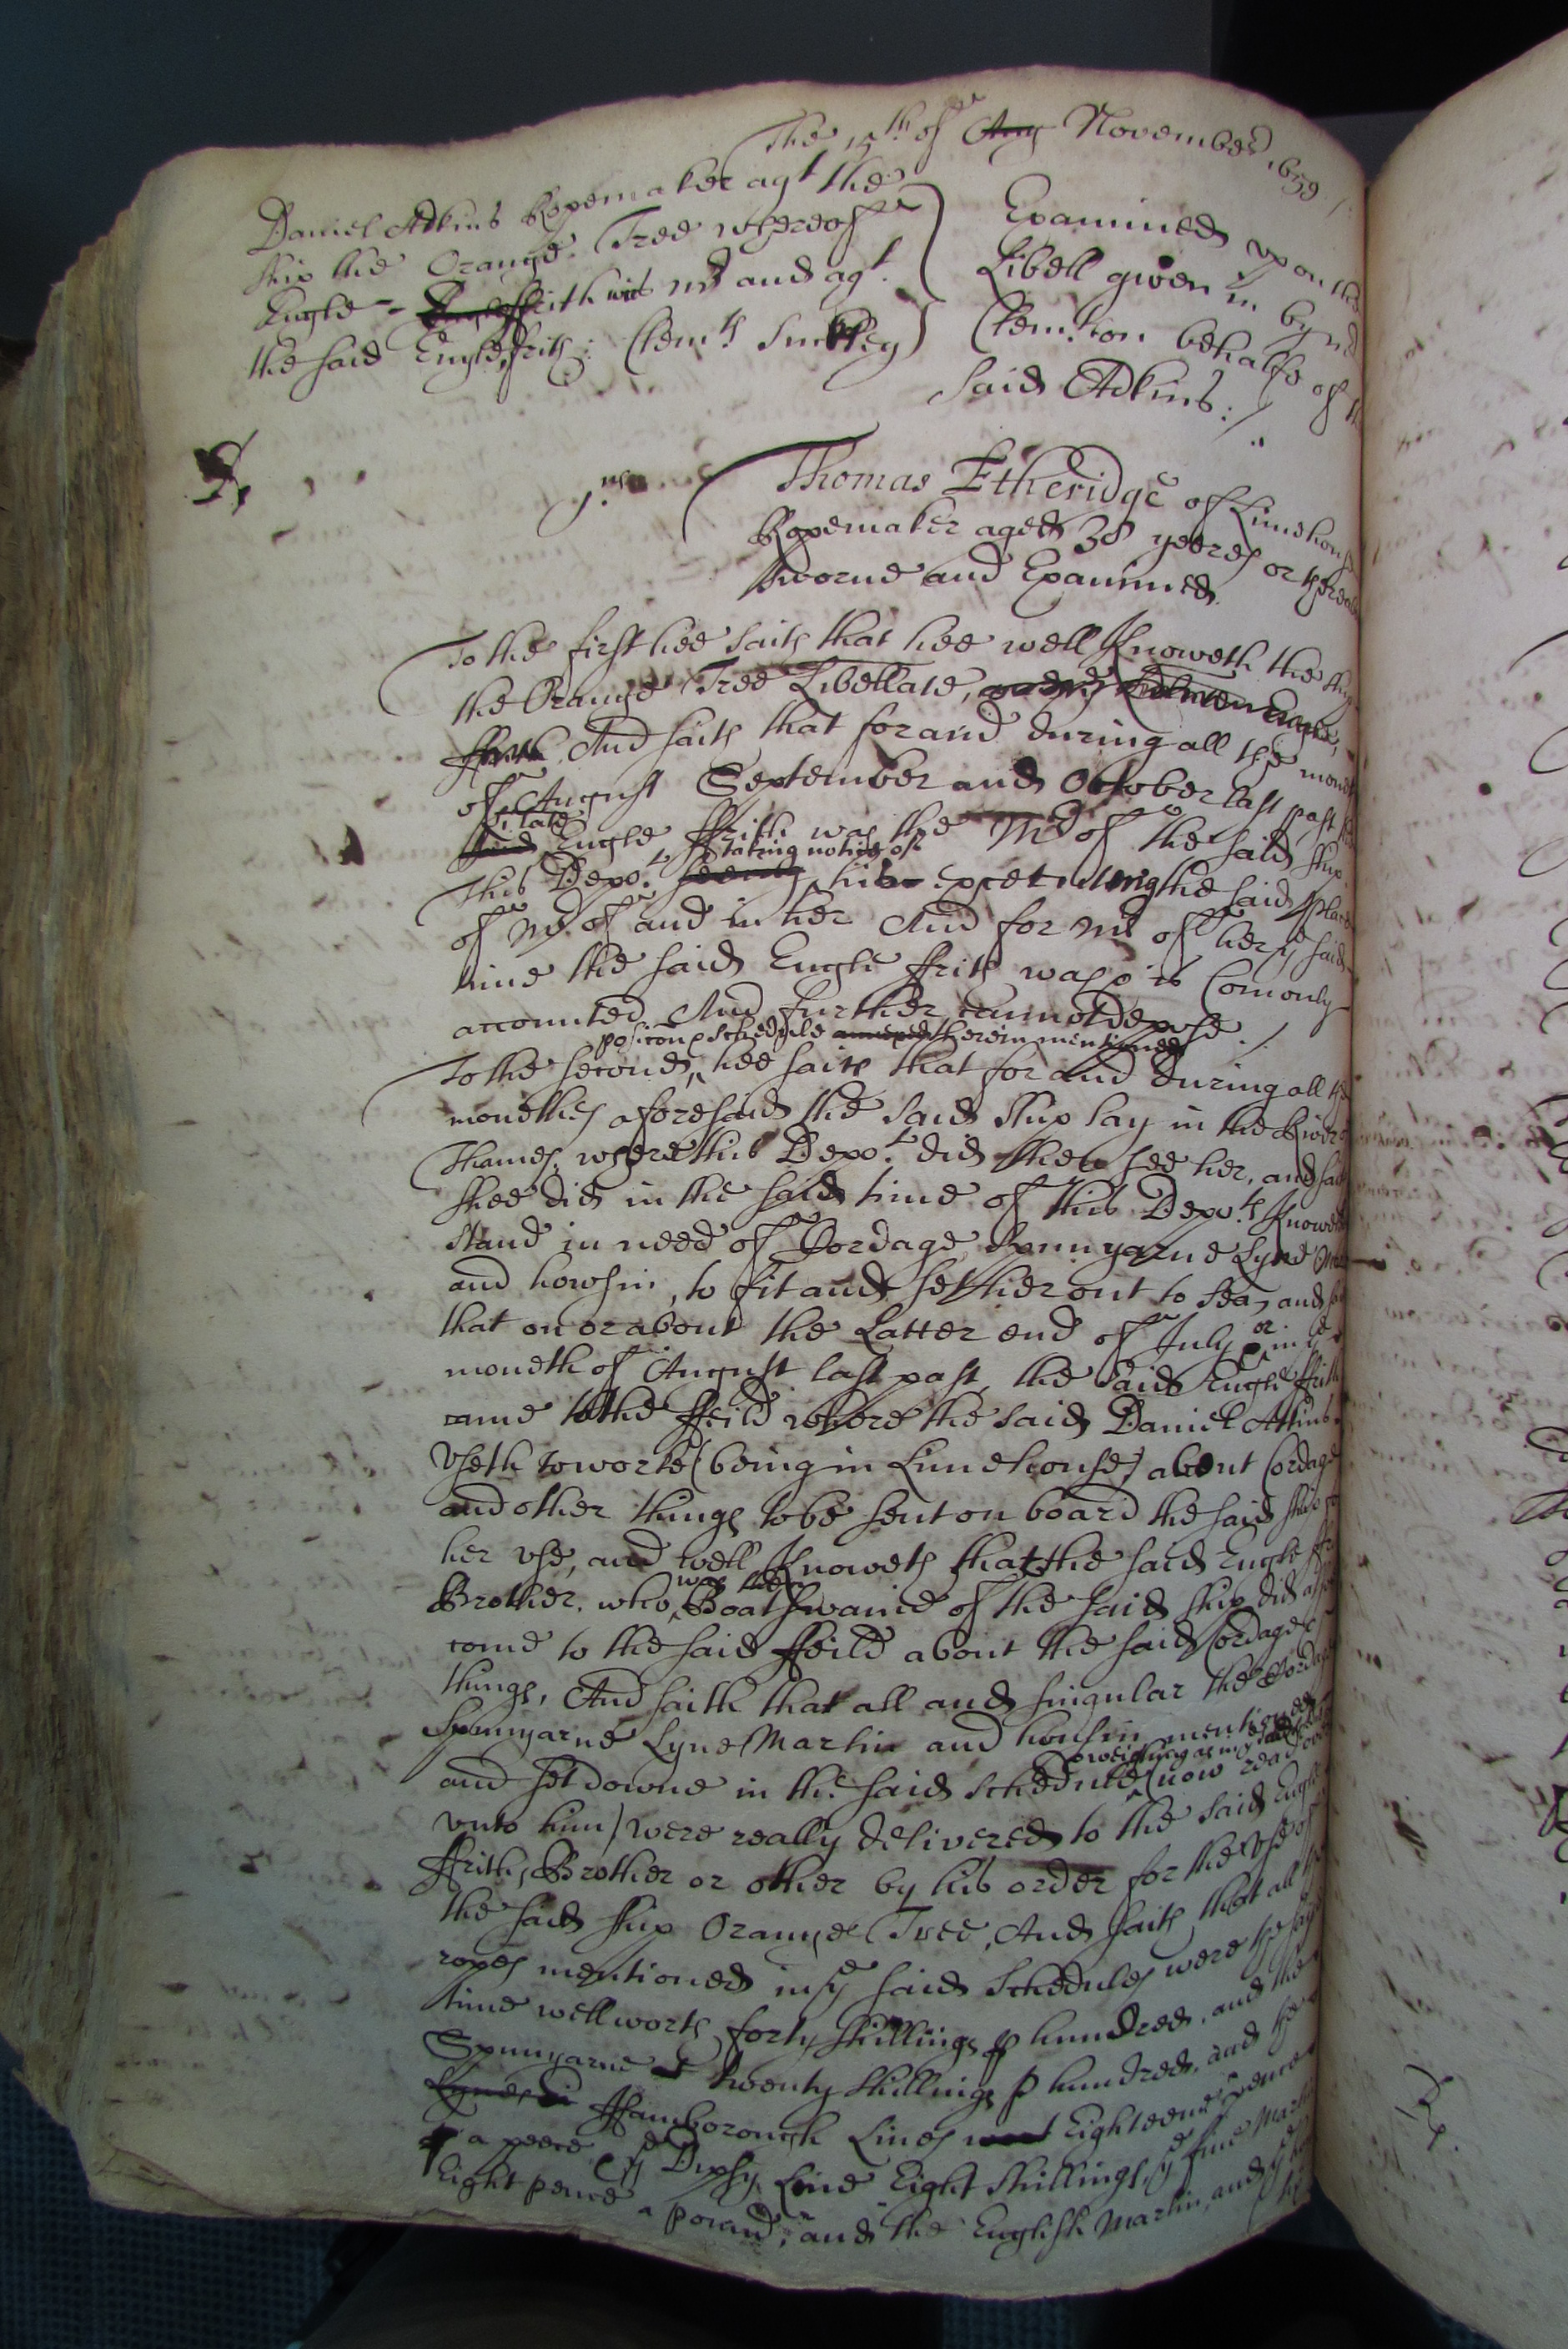 The 15th of Aug November 1659
Daniel Adkins Ropemaker agt the
ship the Orange Tree whereof
Engle - Englefrith was Mr and agt
the said Engle frith: Clemts Smith
Examined upon the
Libell given in by
Clemt on behalfe of the
said Adkins:/
Thomas Etheridge of Limehouse
Ropemaker aged 38 yeeres or thereab
sworne and Examined
To the first hee saith that hee well Knoweth the ship
the Orange Tree Libellate,
ffrith And saith that for and during all the moneths
of August September and October last past
late
said Engle ffrith was the Mr of the said ship
taking notice of
This Depot seeing his exercising the said place
of Mr. of and in her And for Mr of her ye said
time the said Engle ffrith was & is Comonly
accounted And further cannot depose./
position & schedule annexed therein mentioned
To the second, hee saith that for and during all the
monethes aforesaid the said ship lay in the River of
Thames, where this Depot. did then see her, and saith
shee did in the said time of this Depots Knowledge
stand in need of Cordage Spunnyarne Lyne Mar
and howsin, to fit and set her out to sea, and saith
that on or about the Latter end of July or in ye
moneth of August last past, the said Engle ffrith
came to the ffeild where the said Daniel Atkins
vseth to worke (being in Limehouse) about Cordage
and other things to be sent on board the said ship for
her vse, and well Knoweth that the said Engle ffr
was then
Brother, who Boatswaine of the said ship did also
come to the said ffeild about the said Cordage &
things, And saith that all and singular the Cordage
Spunnyarne Lyne Marlin and housin mentioned
weighing as in ye
and set downe in the said Schedule (now read over
vnto him) were really delivered to the said Engle
ffrith, Brother or other by his order for the vse of
the said ship Orange Tree, And saith that all the
ropes mentioned in ye said Schedules were the said
time well worth forty shillings p hundred, and the
Spunyarne twenty shillings p hundred, and the
Lynes Hamborough Lines Eighteene pence
a peece, ye Dipsy Line Eight shillings, ye fine Marlin
Eight pence a pound, and the English Marlin, and ye